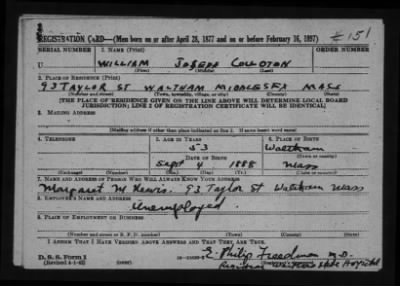 #151
REGISTRATION CARD—(Men born on or after April 28, 1877 and on or before February 16, 1897)
SERIAL NUMBER 1. NAME (Print) ORDER NUMBER
U WILLIAM JOSEPH COLLOTON
(First) (Middle) (Last)
2. PLACE OF RESIDENCE (Print)
93 TAYLOR ST WALTHAM MIDDLESEX MASS
(Number and street) (Town, township, village, or city) (County) (State)
[THE PLACE OF RESIDENCE GIVEN ON THE LINE ABOVE WILL DETERMINE LOCAL BOARD
JURISDICTION; LINE 2 OF REGISTRATION CERTIFICATE WILL BE IDENTICAL]
3. MAILING ADDRESS
[Mailing address if other than place indicated on line 2. If same insert word same]
4. TELEPHONE 5. AGE IN YEARS 6. PLACE OF BIRTH
53 Waltham
DATE OF BIRTH (Town or county)
Sept 4 1888 Mass
(Exchange) (Number) (Mo.) (Day) (Yr.) (State or country)
7. NAME AND ADDRESS OF PERSON WHO WILL ALWAYS KNOW YOUR ADDRESS
Margaret M 93 Taylor St Waltham Mass
8. EMPLOYER'S NAME AND ADDRESS
Unemployed
9. PLACE OF EMPLOYMENT OR BUSINESS
(Number and street or R. F. D. number) (Town) (County) (State)
I AFFIRM THAT I HAVE VERIFIED ABOVE ANSWERS AND THAT THEY ARE TRUE.
D. S. S. Form 1 Philip Freedman M.D.
(Revised 4-1-42) Registrar Hospital